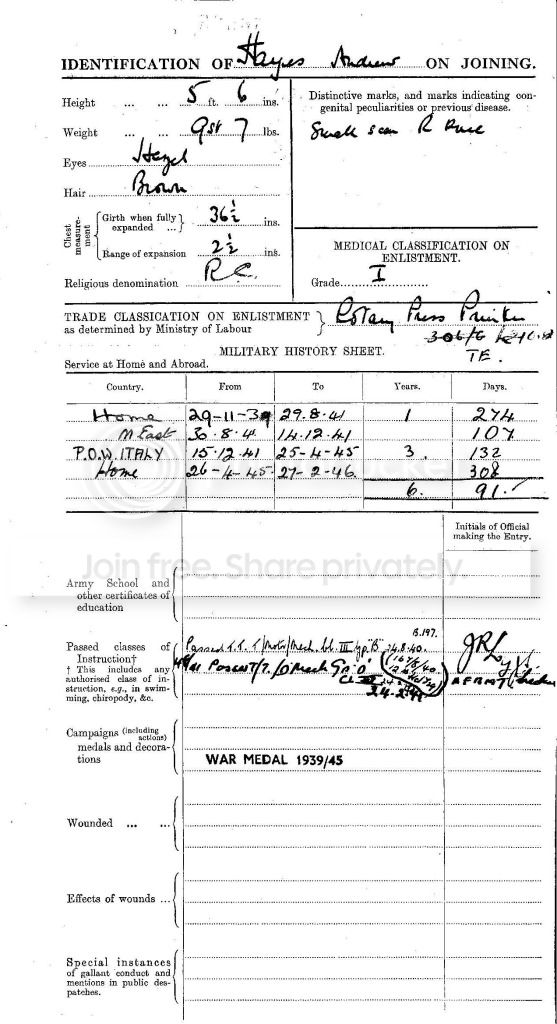 IDENTIFICATION OF Hayes Andrew ON JOINING.
Height ... ... 5 ft. 6 ins.
Weight ... ... 9st 7 lbs.
Eyes Hazel
Hair Brown
Chest measurement
Girth when fully expanded ... 36½ ins.
Range of expansion 2½ ins.
Religious denomination R.C.
Distinctive marks, and marks indicating con-
genital peculiarities or previous disease.
Small scar R
MEDICAL CLASSIFICATION ON
ENLISTMENT.
Grade I
TRADE CLASSICATION ON ENLISTMENT
as determined by Ministry of Labour
Rotary Press Printer
TE.
MILITARY HISTORY SHEET.
Service at Home and Abroad.
Country. From To Years. Days.
Home 29-11-39 29.8.41 1 274
M East 30.8.41 14.12.41 107
P.O.W. ITALY 15.12.41 25-4-45 3. 132
Home 26-4-45 27-2-46. 308
6. 91.
Initials of Official
making the Entry.
Army School and
other certificates of
education
Join free. Share privately.
B.197.
Passed classes of
Instruction†
† This includes any
authorised class of in-
struction, e.g., in swim-
ming, chiropody, &c.
Passed Mech. III "B" 24.8.40.
24.2.41
Campaigns (including
actions)
medals and decora-
tions
WAR MEDAL 1939/45
Wounded ... ...
Effects of wounds ...
Special instances
of gallant conduct and
mentions in public des-
patches.